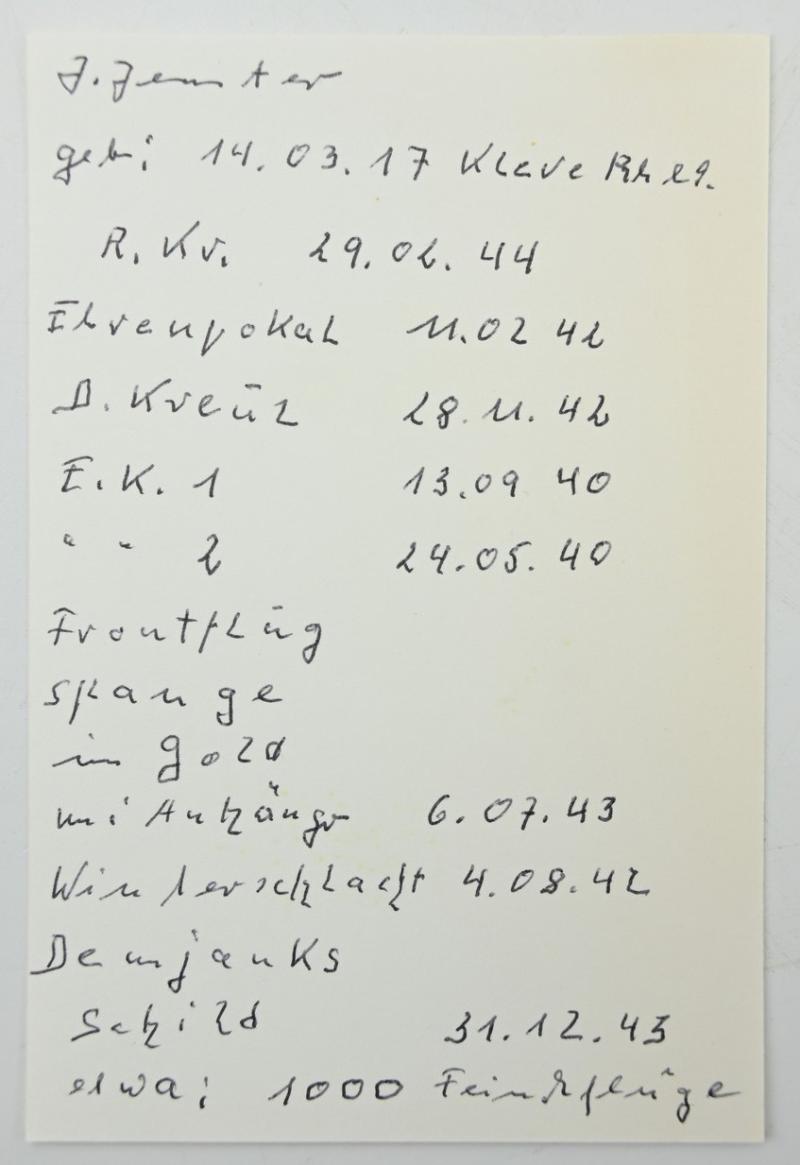 J. Jenster
geb: 14.03.17 Kleve Rhld.
R. Kr. 29.02.44
Ehrenpokal 11.02 42
D. Kreuz 28.11.42
E.K. 1 13.09 40
" " 2 24.05.40
Frontflug
spange
in gold
mit Anhänger 6.07.43
Winterschlacht 4.08.42
Demjanks
Schild 31.12.43
etwa: 1000 Feindflüge